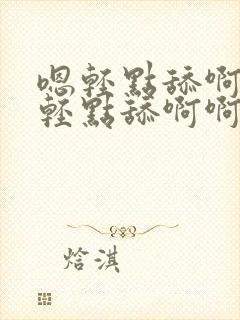 嗯輕點舔啊
輕點舔啊啊
焓淇